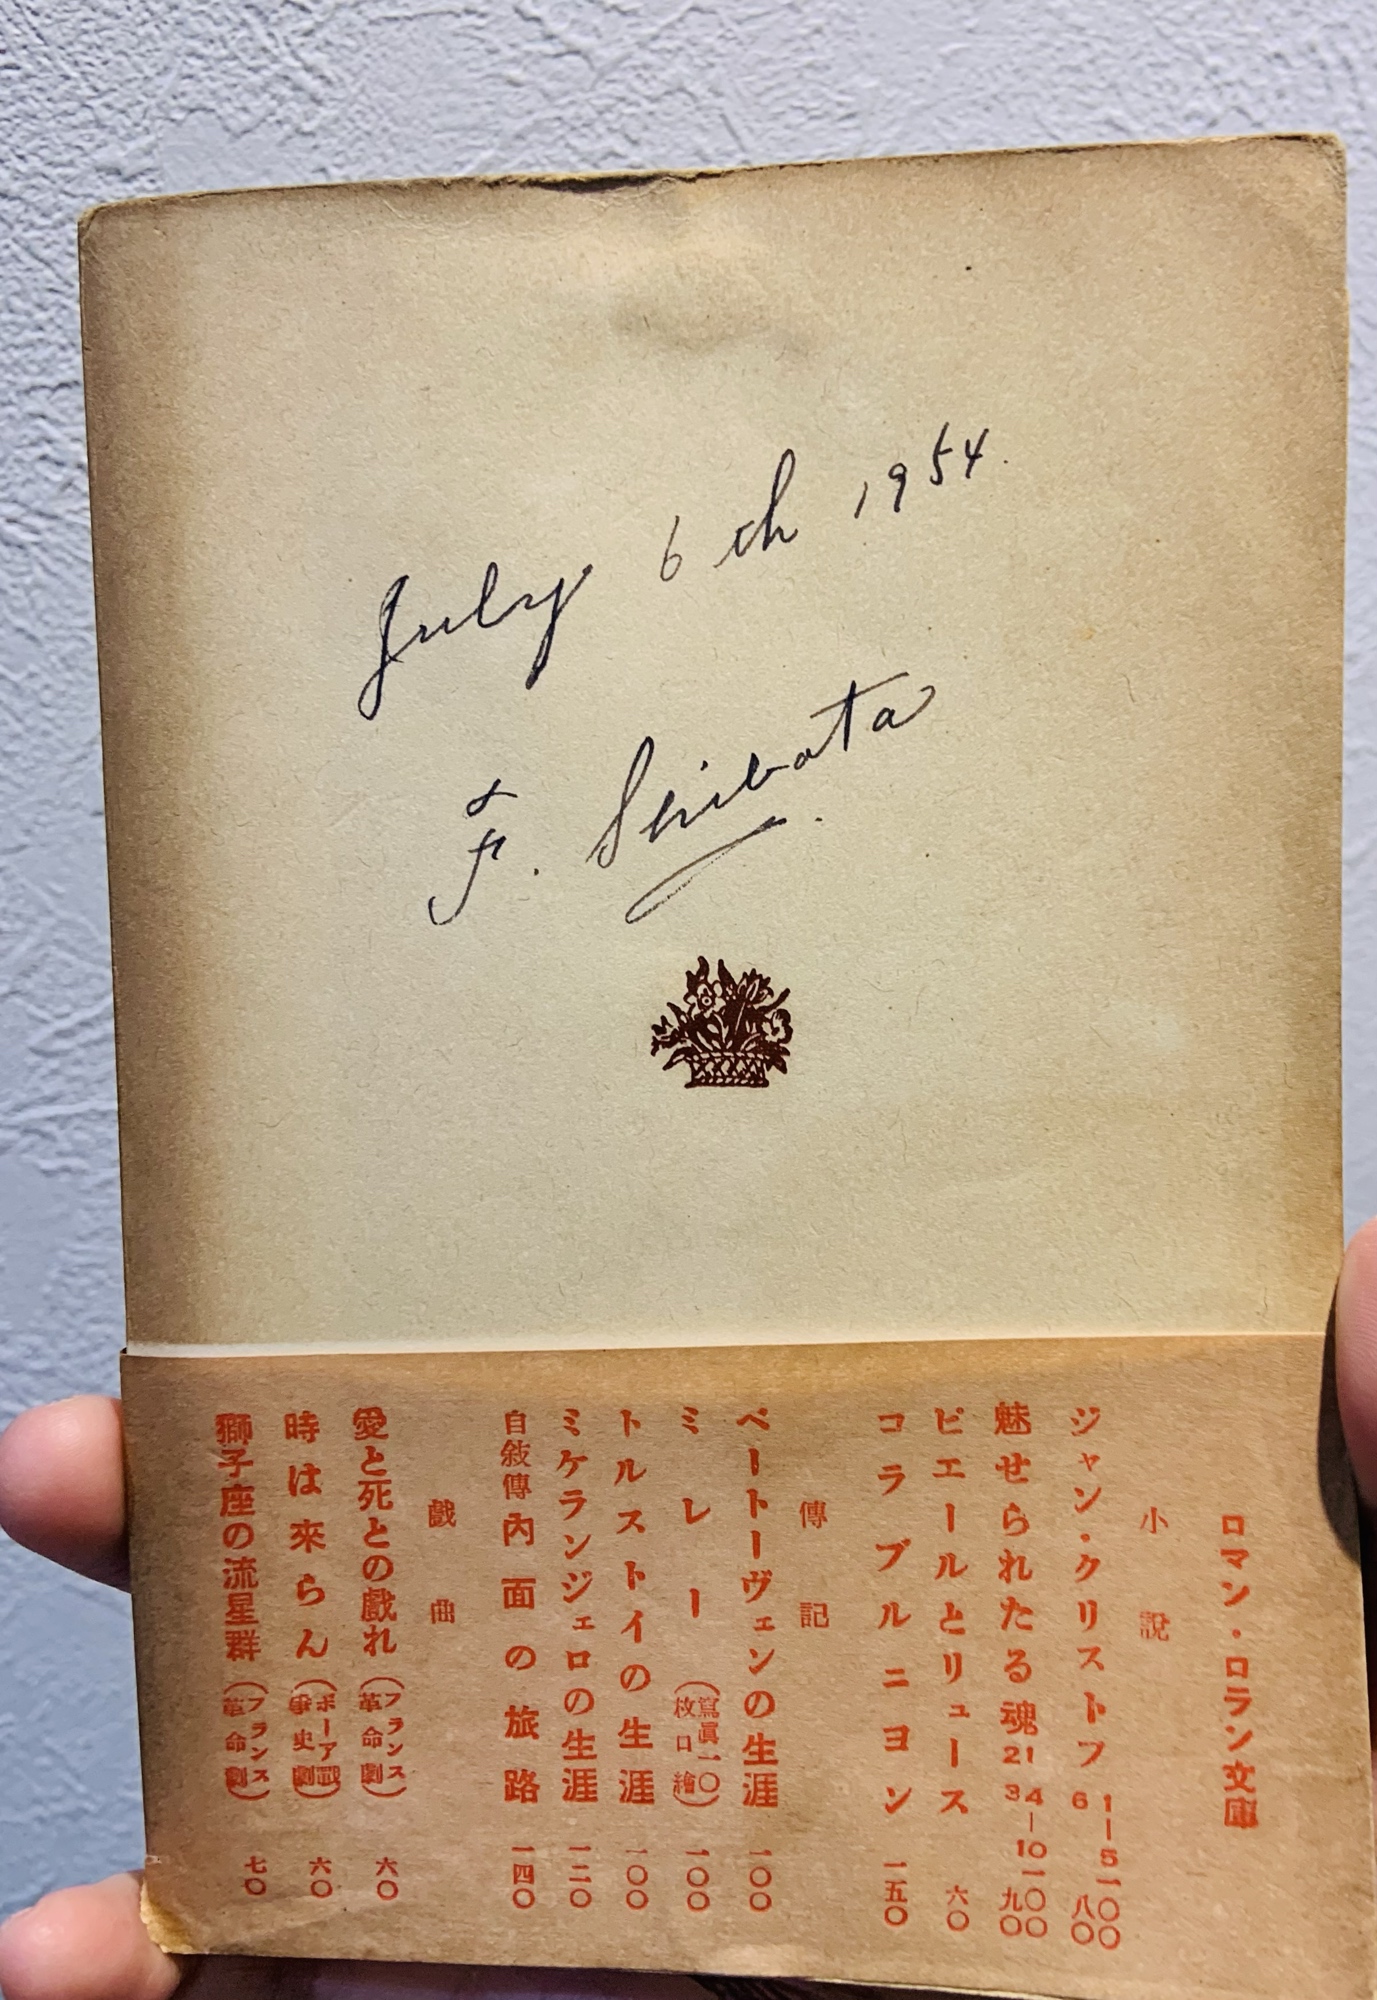 July 6th 1954.
F. Shibata.
ロマン・ロラン文庫
小説
ジャン・クリストフ 1―5 一〇〇 6 八〇
魅せられたる魂 21 34―10 一〇〇 九〇
ピエールとリュース 六〇
コラブルニヨン 一五〇
傳記
ベートーヴェンの生涯 一〇〇
ミレー (寫眞一〇枚口繪) 一〇〇
トルストイの生涯 一〇〇
ミケランジェロの生涯 一二〇
自敍傳 内面の旅路 一四〇
戲曲
愛と死との戲れ (フランス革命劇) 六〇
時は來らん (ボーア戰爭史劇) 六〇
獅子座の流星群 (フランス革命劇) 七〇